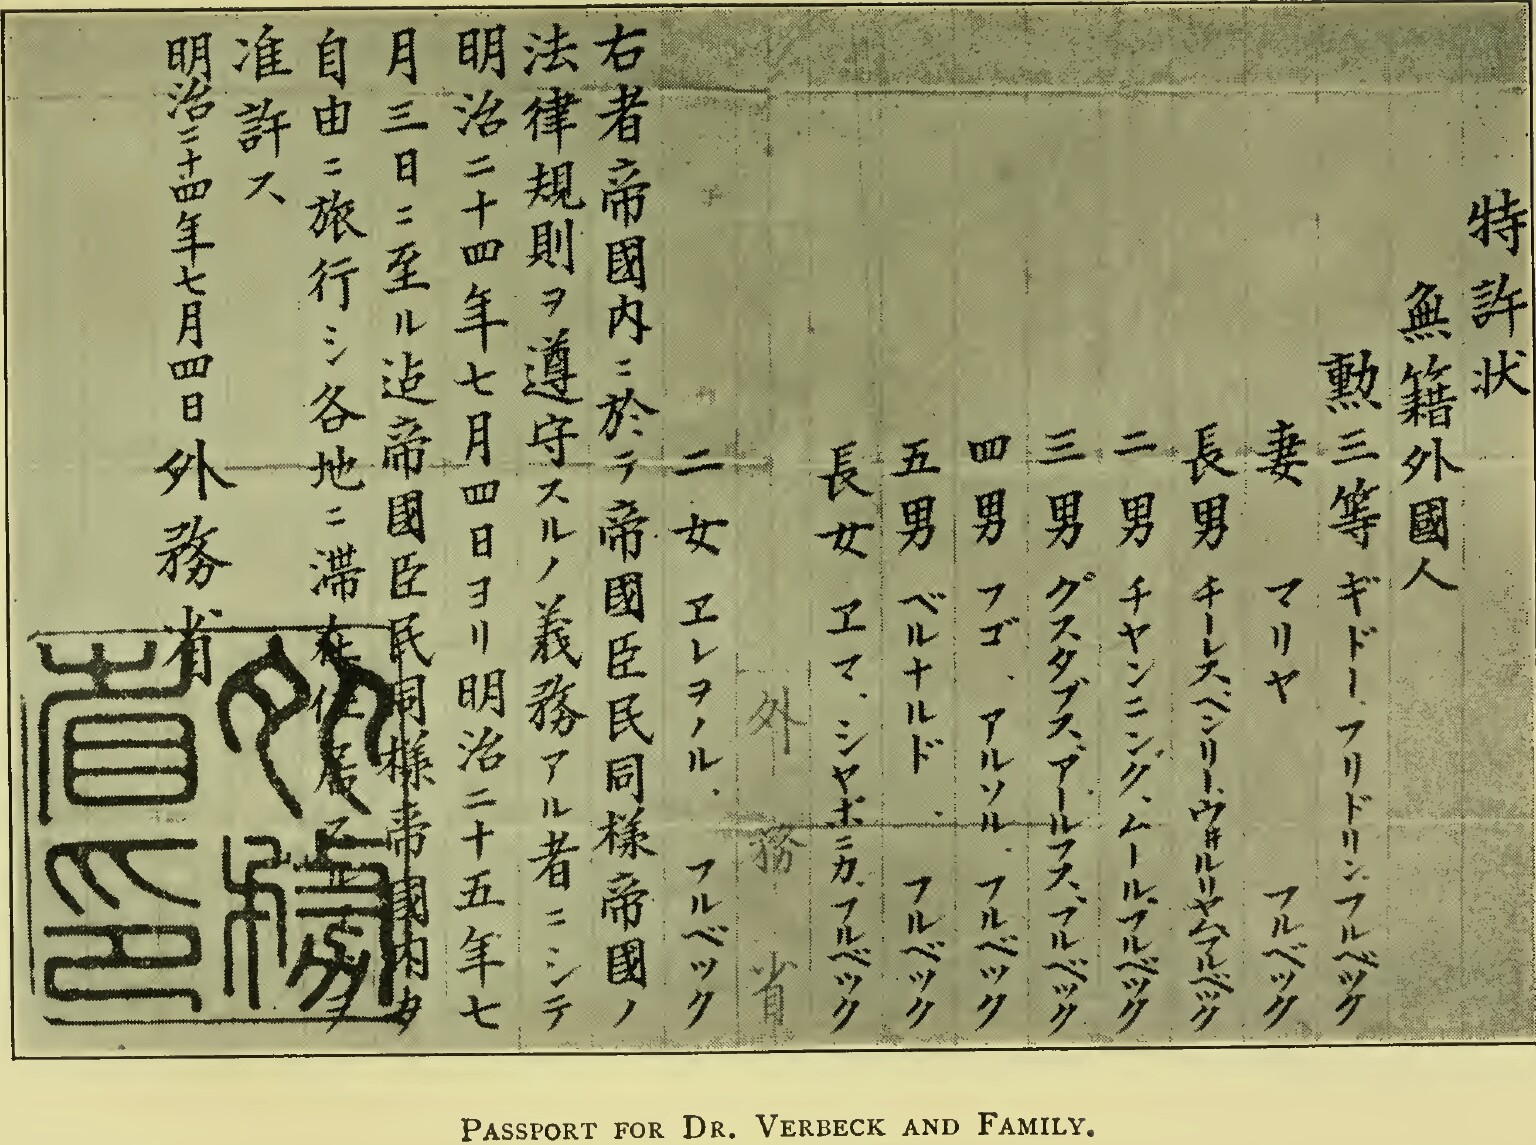 特許状
無籍外國人
勲三等 ギドー、フリドリン、フルベック
妻 マリヤ フルベック
長男 チーレスヘンリー、ウヰルリヤムフルベック
二男 チヤンニング、ムール、フルベック
三男 グスタブスアールフス、フルベック
四男 フゴ、アルソル、フルベック
五男 ベルナルド フルベック
長女 ヱマ、シヤポニカ、フルベック
外務省
二女 ヱレヲノル、フルベック
右者帝國内ニ於テ帝國臣民同様帝國ノ
法律規則ヲ遵守スルノ義務アル者ニシテ
明治二十四年七月四日ヨリ明治二十五年七
月三日ニ至ル迠帝國臣民同様帝國内タ
自由ニ旅行シ各地ニ滞在住居スルヲ
准許ス
明治二十四年七月四日 外務省
外務省印
PASSPORT FOR DR. VERBECK AND FAMILY.